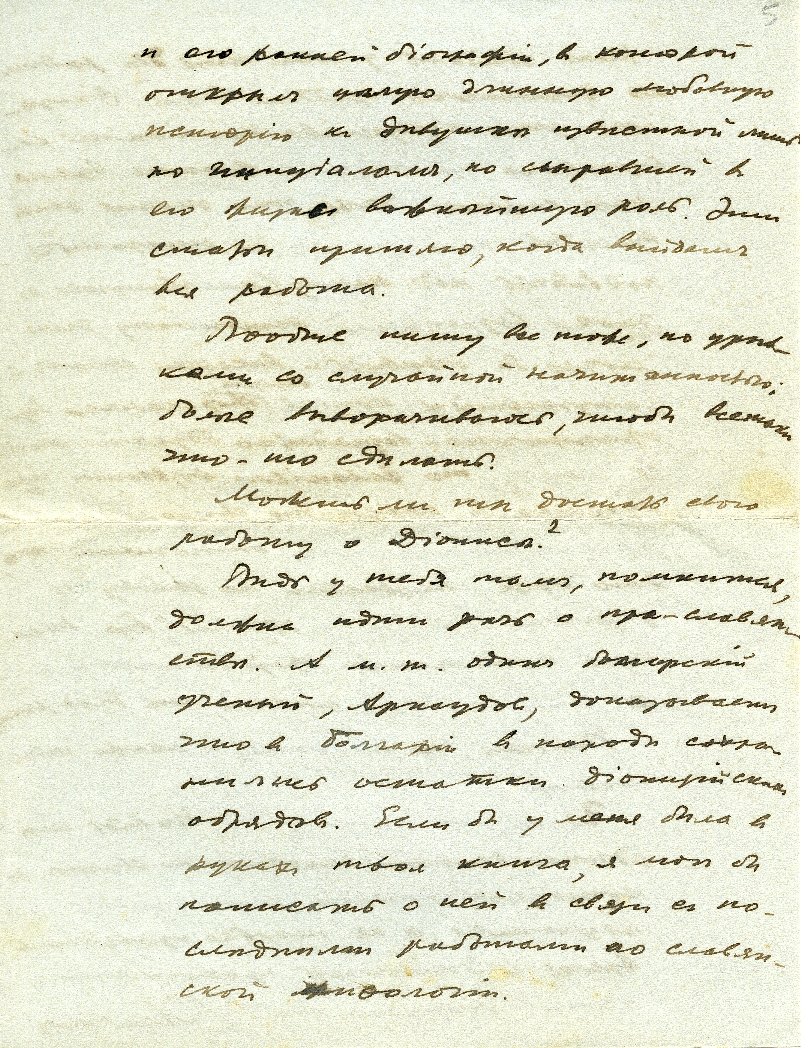 5
и его ранней біографіи, в которой
открыл целую длинную любовную
исторію к девушке известной лишь
по инициалам, но сыгравшей в
его жизни важнейшую роль. Эти
статьи пришлю, когда выйдет
вся работа.
Вообще пишу все тоже, но урыв-
ками со случайной начитанностью;
более выворачиваюсь, чтобы всетаки
что-то сделать.
Можешь ли ты достать свою
работу о Діонисе?²
Ведь у тебя там, помнится,
должна идти речь о пра-славян-
стве. А м. т. один болгарскій
ученый, Арнаудов, доказывает
что в Болгаріи в народе сохра-
нились остатки діонисійских
обрядов. Если бы у меня была в
руках твоя книга, я мог бы
написать о ней в связи с по-
следними работами по славян-
ской миθологіи.